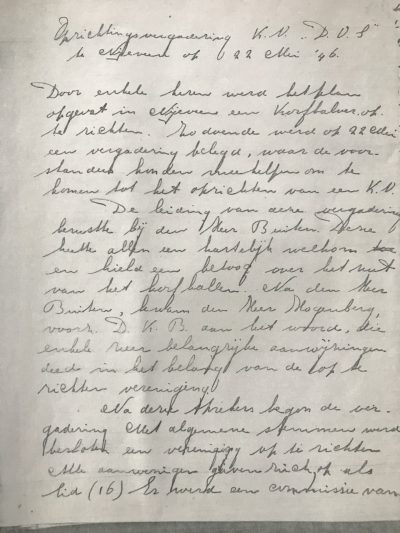 Oprichtingsvergadering K.V. "D.O.S"
te Nijeveen op 22 Mei '46.
Door enkele heren werd het plan
opgevat in Nijeveen een Korfbalver. op
te richten. Zodoende werd op 22 Mei
een vergadering belegd, waar de voor-
standers konden meehelpen om te
komen tot het oprichten van een K.V.
De leiding van deze vergadering
berustte bij den Heer Buiten. Deze
heette allen een hartelijk welkom
en hield een betoog over het nut
van het korfballen. Na den Heer
Buiten, kwam den Heer
voorz. D.K.B. aan het woord, die
enkele zeer belangrijke aanwijzingen
deed in het belang van de op te
richten vereniging.
Na deze sprekers begon de ver-
gadering Met algemene stemmen werd
besloten een vereniging op te richten
Alle aanwezigen gaven zich op als
lid (16) Er werd een commissie van